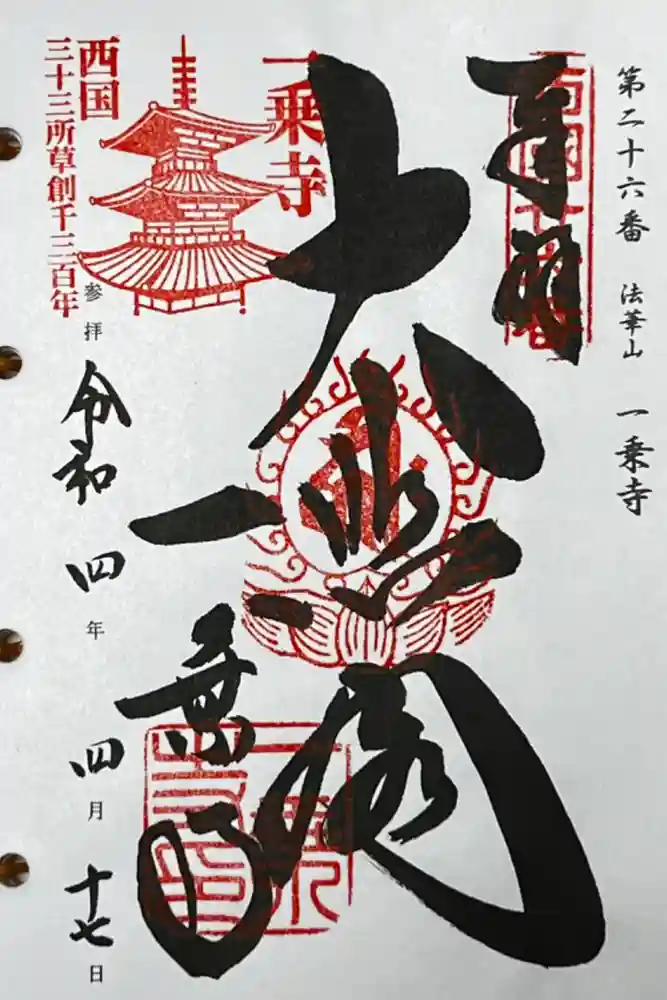 第二十六番 法華山 一乗寺
西國廿六番
奉拝
大悲閣
一乗寺
一乗寺
西国
三十三所草創千三百年
参拝 令和四年四月十七日